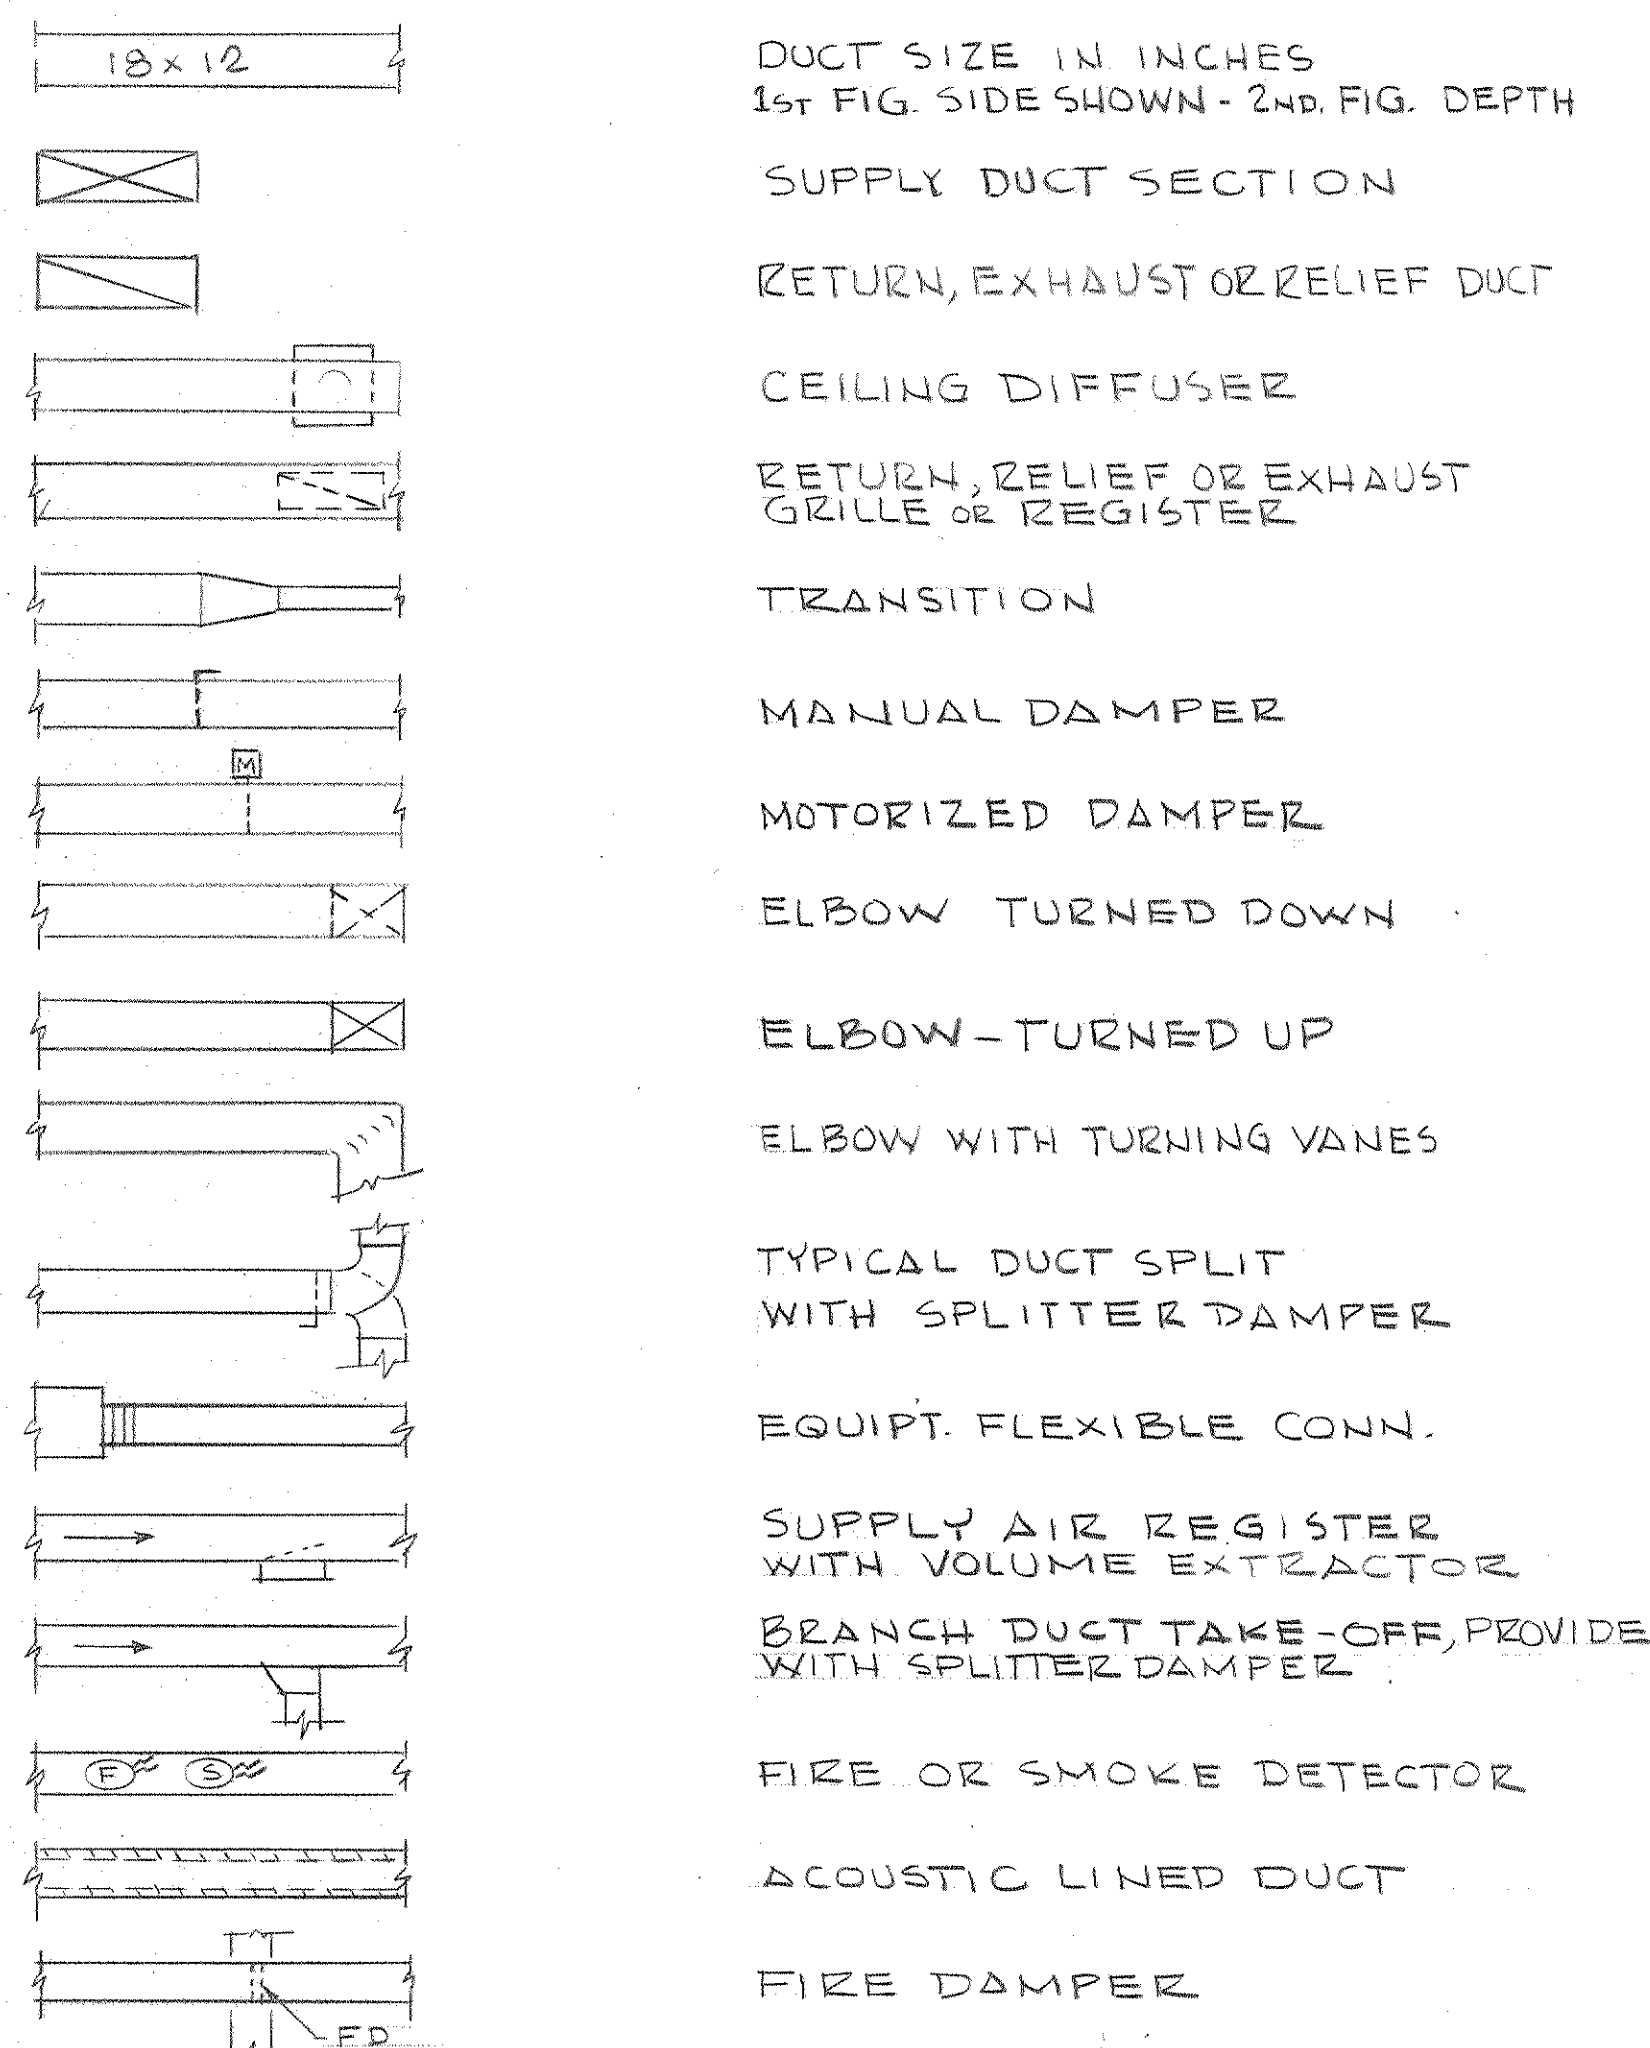 18 x 12
DUCT SIZE IN INCHES
1ST FIG. SIDE SHOWN - 2ND. FIG. DEPTH
SUPPLY DUCT SECTION
RETURN, EXHAUST OR RELIEF DUCT
CEILING DIFFUSER
RETURN, RELIEF OR EXHAUST
GRILLE OR REGISTER
TRANSITION
MANUAL DAMPER
M
MOTORIZED DAMPER
ELBOW TURNED DOWN
ELBOW - TURNED UP
ELBOW WITH TURNING VANES
TYPICAL DUCT SPLIT
WITH SPLITTER DAMPER
EQUIPT. FLEXIBLE CONN.
SUPPLY AIR REGISTER
WITH VOLUME EXTRACTOR
BRANCH DUCT TAKE-OFF, PROVIDE
WITH SPLITTER DAMPER
F S
FIRE OR SMOKE DETECTOR
ACOUSTIC LINED DUCT
FIRE DAMPER
FD